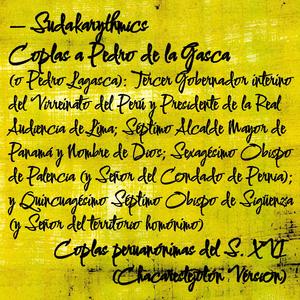 — Sudakarythmics
Coplas a Pedro de la Gasca
(o Pedro Lagasca): Tercer Gobernador interino
del Virreinato del Perú y Presidente de la Real
Audiencia de Lima; Séptimo Alcalde Mayor de
Panamá y Nombre de Dios; Sexagésimo Obispo
de Palencia (y Señor del Condado de Pernía);
y Quincuagésimo Séptimo Obispo de Sigüenza
(y Señor del territorio homónimo)
Coplas peruanónimas del S. XVI
(Chacarestepolón Version)